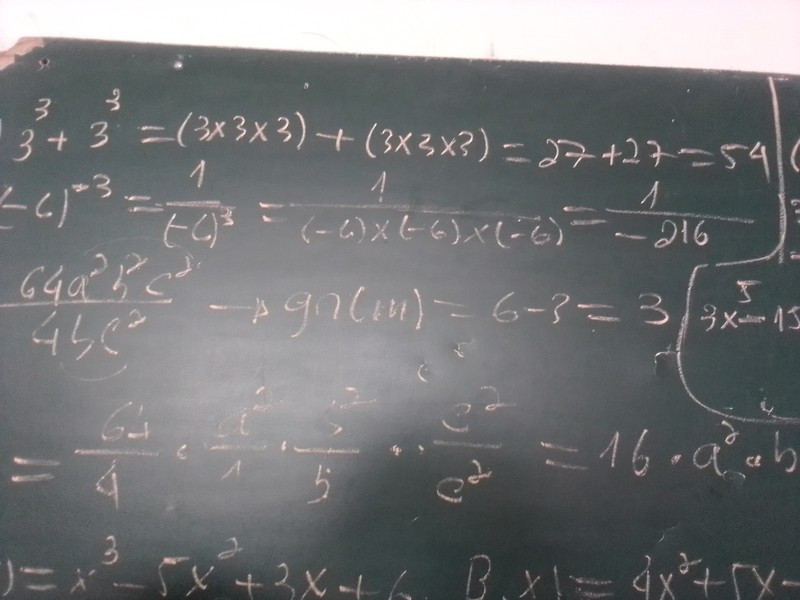 3³ + 3³ = (3x3x3) + (3x3x3) = 27+27 = 54
(-6)⁻³ = 1/(-6)³ = 1/((-6)x(-6)x(-6)) = 1/-216
64a²b²c²/4bc² → gr(M) = 6-3 = 3
3x⁵-15
= 64/4 · a²/1 · b²/b · c²/c² = 16 · a² · b
) = x³ - 5x² + 3x + 6 B x) = 4x² + 5x -